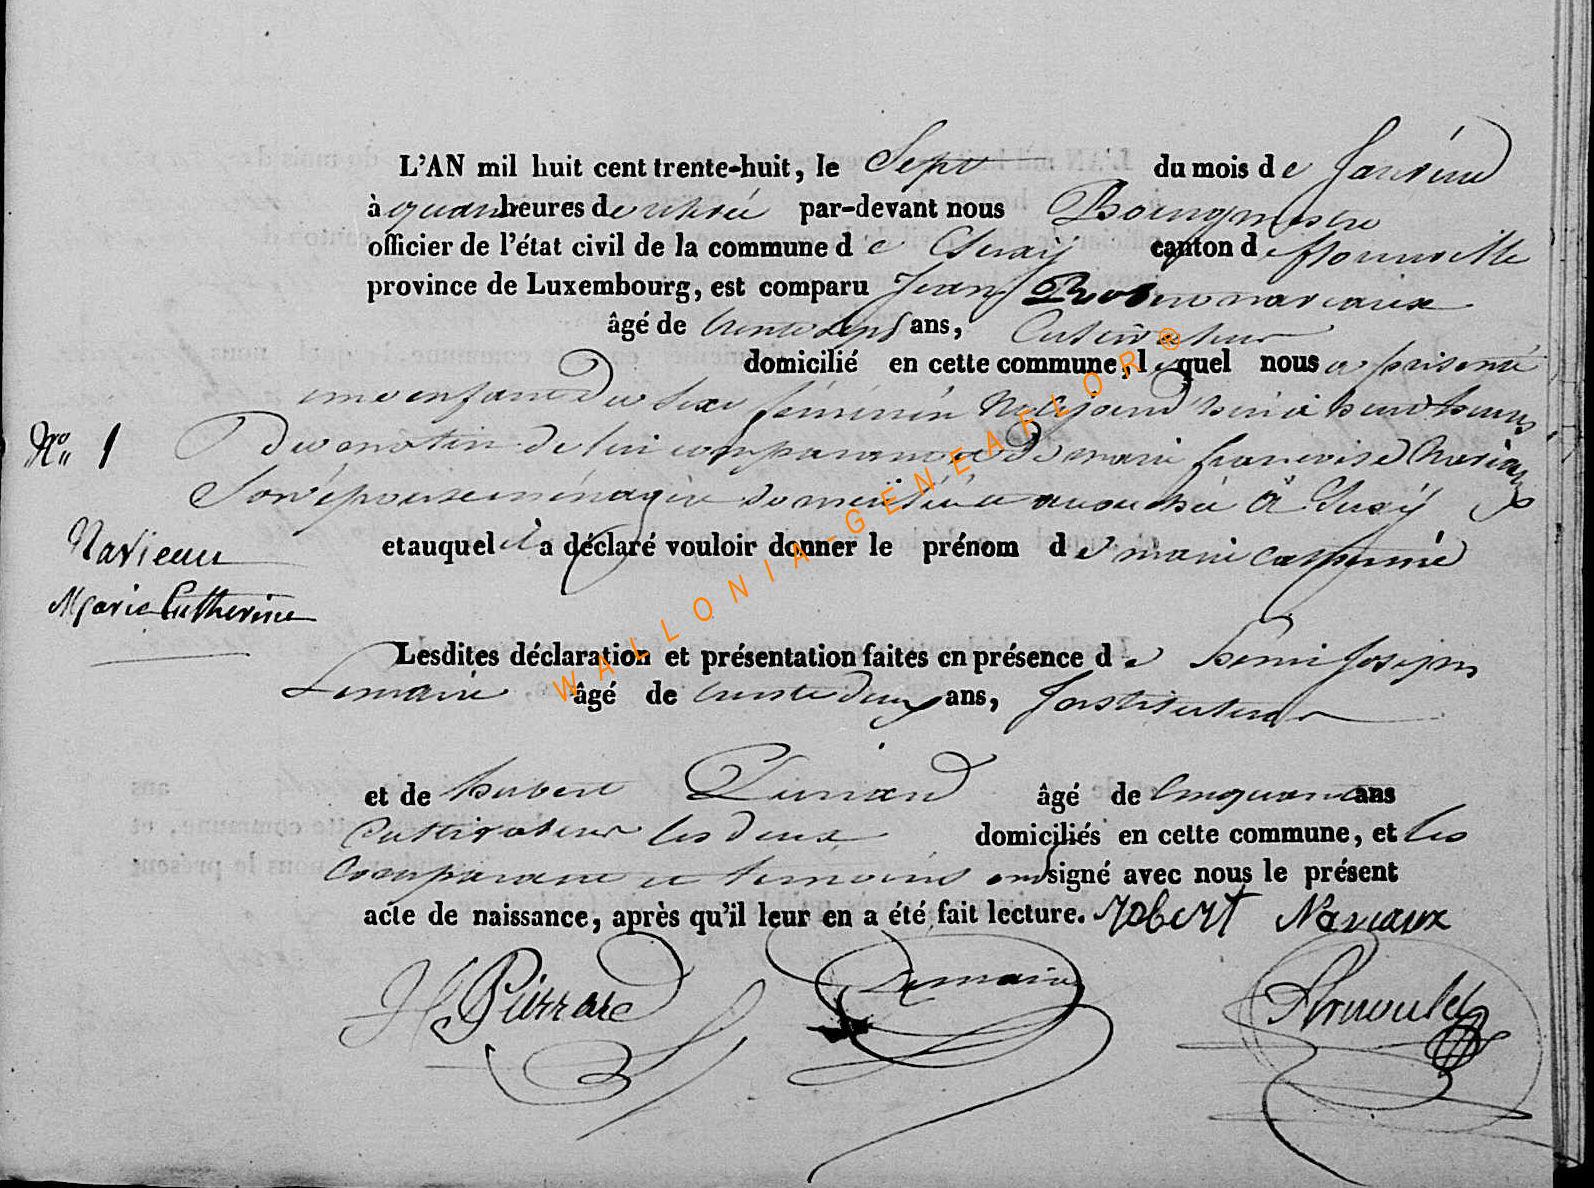 L'AN mil huit cent trente-huit, le Sept du mois de Janvier
à quatre heures de relevée par-devant nous Bourgmestre
officier de l'état civil de la commune de Suxÿ canton de florenville
province de Luxembourg, est comparu Jean Robert navaux
âgé de trente sept ans, Cultivateur
domicilié en cette commune, lequel nous a présenté
une enfant du sexe féminin Né aujourd'hui à heures
Nº 1
Du matin de lui comparant et de marie francoise
Son épouse ménagère domiciliée à Suxÿ
et auquel il a déclaré vouloir donner le prénom de marie catherine
Navieau
Marie Catherine
Lesdites déclaration et présentation faites en présence de henri Joseph
Lemaire âgé de trente deux ans, Instituteur
et de hubert Pierrard âgé de Cinquante ans
Cultivateur les deux domiciliés en cette commune, et les
Comparant et temoins ont signé avec nous le présent
acte de naissance, après qu'il leur en a été fait lecture. Robert Navaux
H Pierrard Lemaire Arnould
WALLONIA-GENEAFLOR ®